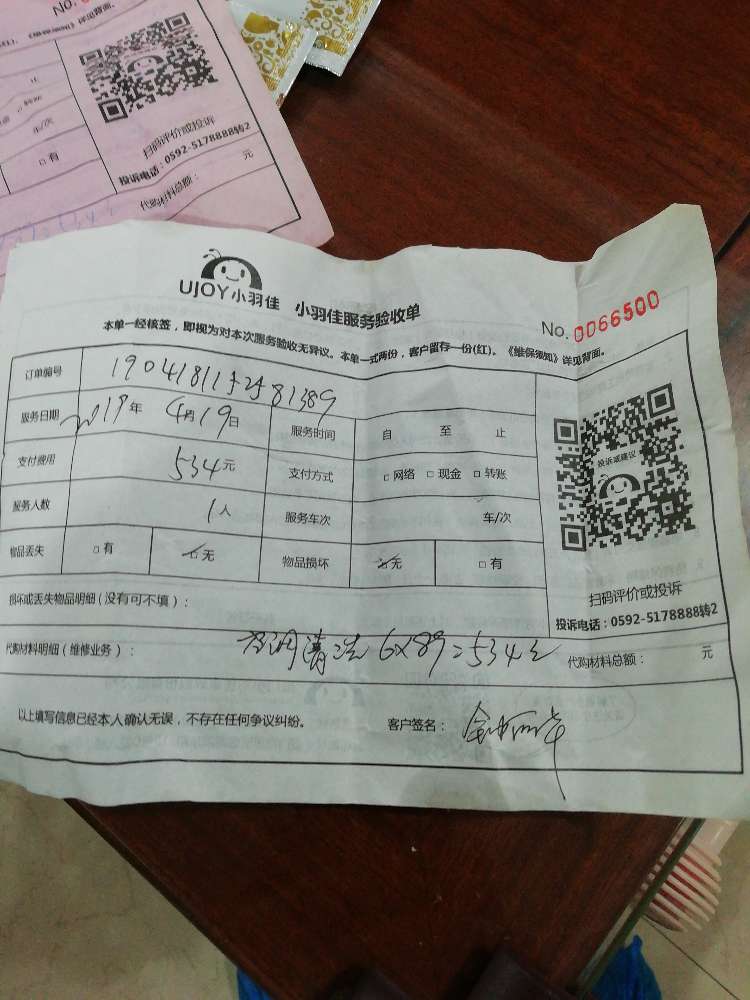 No.
详见背面。
止
转账
车/次
□ 有
扫码评价或投诉
投诉电话：0592-5178888转2
代购材料总额： 元
UJOY小羽佳 小羽佳服务验收单
No. 0066500
本单一经核签，即视为对本次服务验收无异议。本单一式两份，客户留存一份(红)。《维保须知》详见背面。
订单编号
服务日期 2019年 4月19日 服务时间 自 至 止
支付费用 534元 支付方式 □ 网络 □ 现金 □ 转账
服务人数 1人 服务车次 车/次
物品丢失 □ 有 □ 无 物品损坏 □ 无 □ 有
投诉或建议
扫码评价或投诉
投诉电话：0592-5178888转2
损坏或丢失物品明细 ( 没有可不填 )：
代购材料明细 ( 维修业务 )： 空调清洗 6×89=534元 代购材料总额： 元
以上填写信息已经本人确认无误，不存在任何争议纠纷。 客户签名：